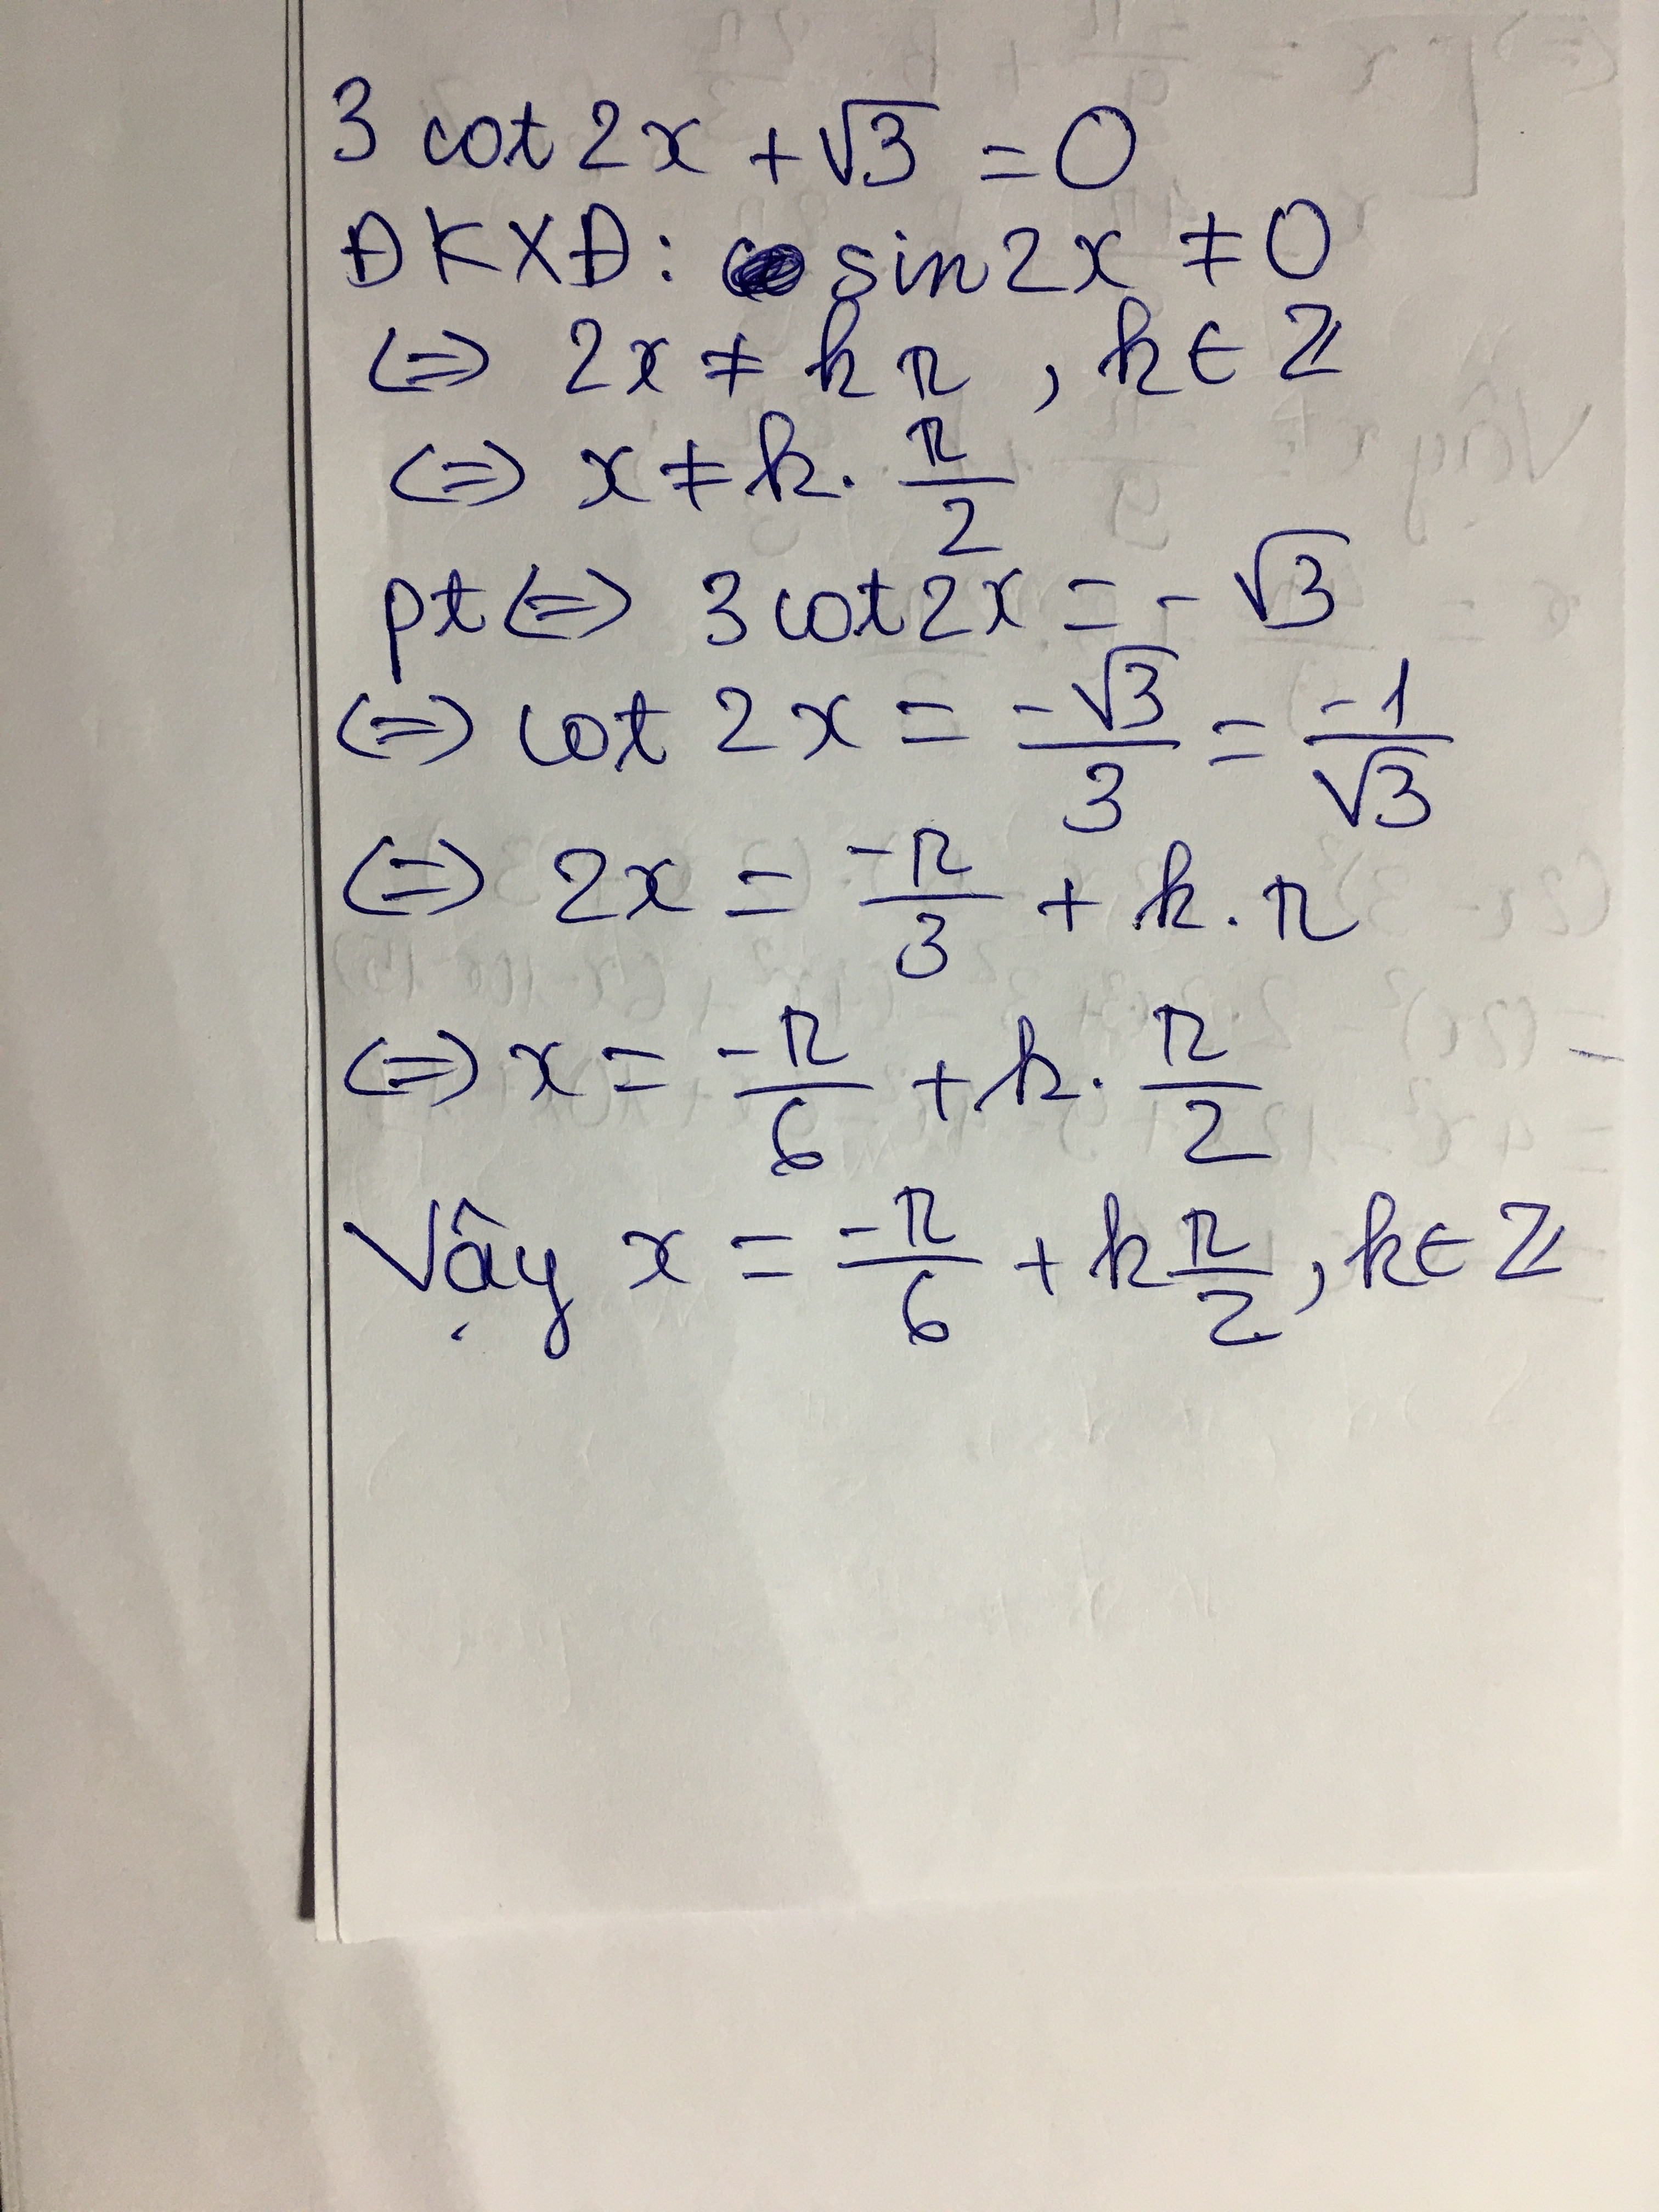 3 cot 2x + √3 = 0
ĐKXĐ: sin 2x ≠ 0
(=) 2x ≠ kπ , k ∈ Z
(=) x ≠ k. π/2
pt (=) 3 cot 2x = - √3
(=) cot 2x = -√3/3 = -1/√3
(=) 2x = -π/3 + k. π
(=) x = -π/6 + k. π/2
Vậy x = -π/6 + k π/2, k ∈ Z